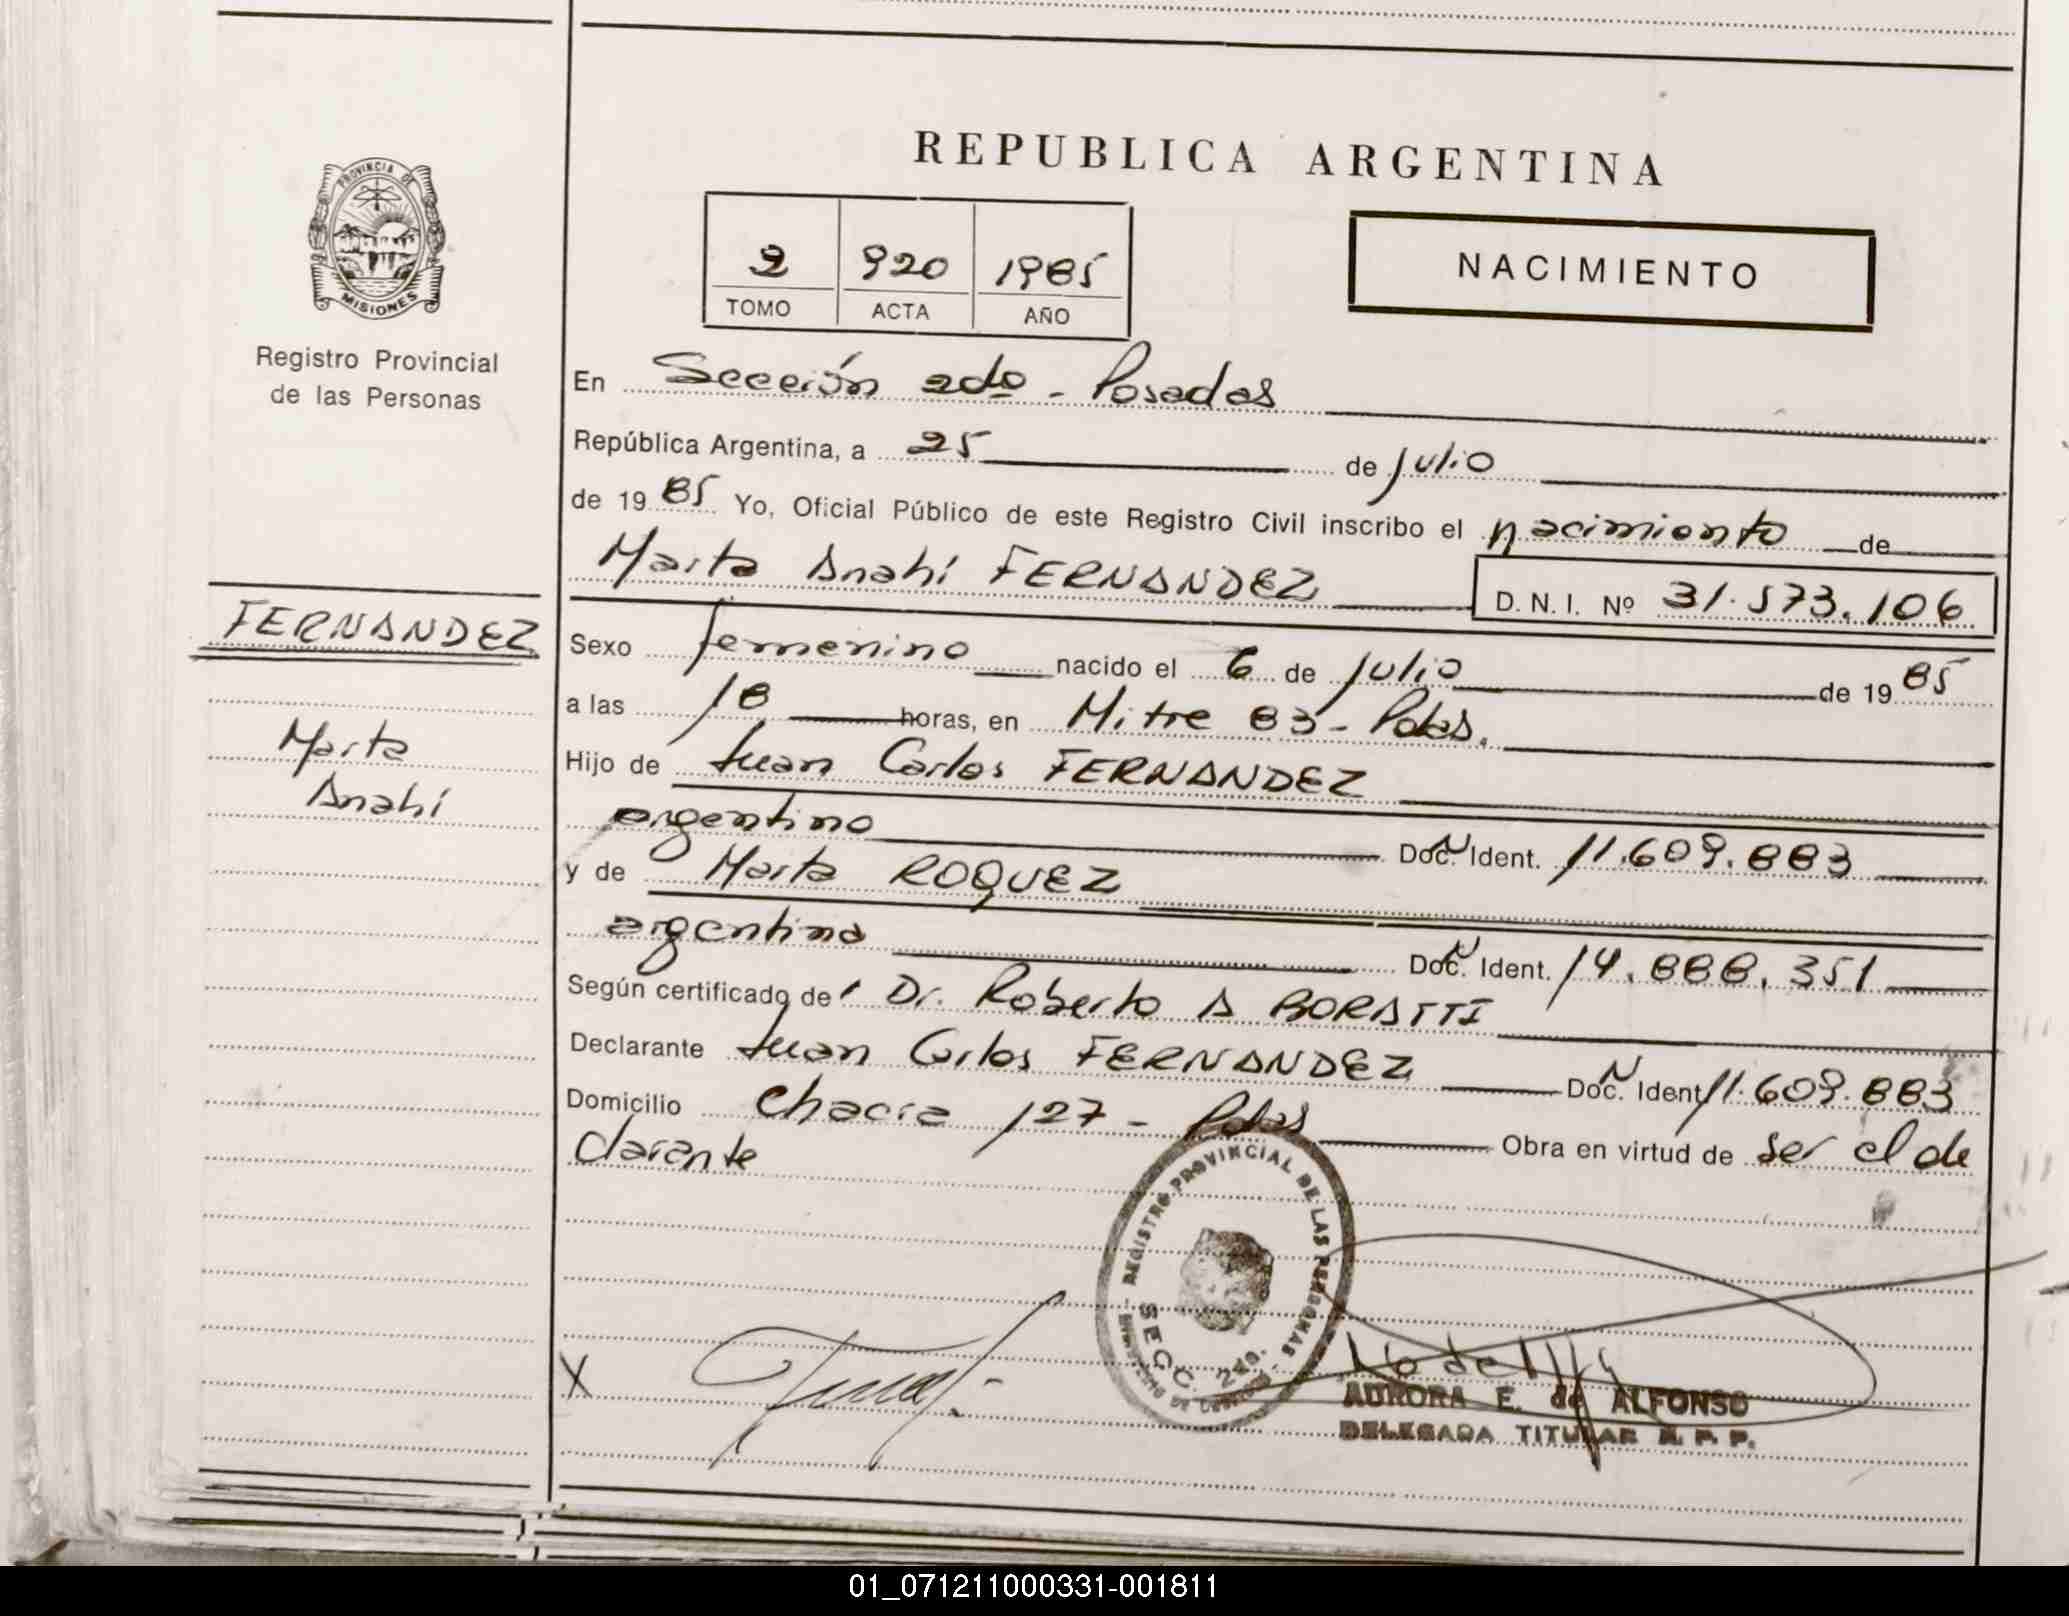 REPUBLICA ARGENTINA
PROVINCIA DE
MISIONES
Registro Provincial
de las Personas
2 920 1985
TOMO ACTA AÑO
NACIMIENTO
En Sección 2do - Posadas
República Argentina, a 25 de julio
de 1985 Yo, Oficial Público de este Registro Civil inscribo el nacimiento de
Marta Anahí FERNANDEZ D. N. I. Nº 31.573.106
FERNANDEZ
Marta
Anahí
Sexo femenino nacido el 6 de julio de 1985
a las 18 horas, en Mitre 83 - Pdas.
Hijo de Juan Carlos FERNANDEZ
argentino Doc. Ident. 11.609.883
y de Marta ROQUEZ
argentina Doc. Ident. 14.888.351
Según certificado de Dr. Roberto A BORATTI
Declarante Juan Carlos FERNANDEZ Doc. Ident 11.609.883
Domicilio Chacra 127 - Pdas Obra en virtud de ser el de
clarante
REGISTRO PROVINCIAL DE LAS PERSONAS
SECC. 2da.
X
AURORA E. de ALFONSO
DELEGADA TITULAR R. P. P.
01_071211000331-001811